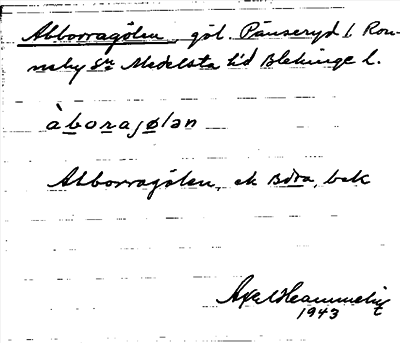 Abborragölen, göl Pänseryd i Ron-
neby sn Medelsta hd Blekinge l.
àboragølan
Abborragölen, ek Böta, bek
Axel Hammelin
1943